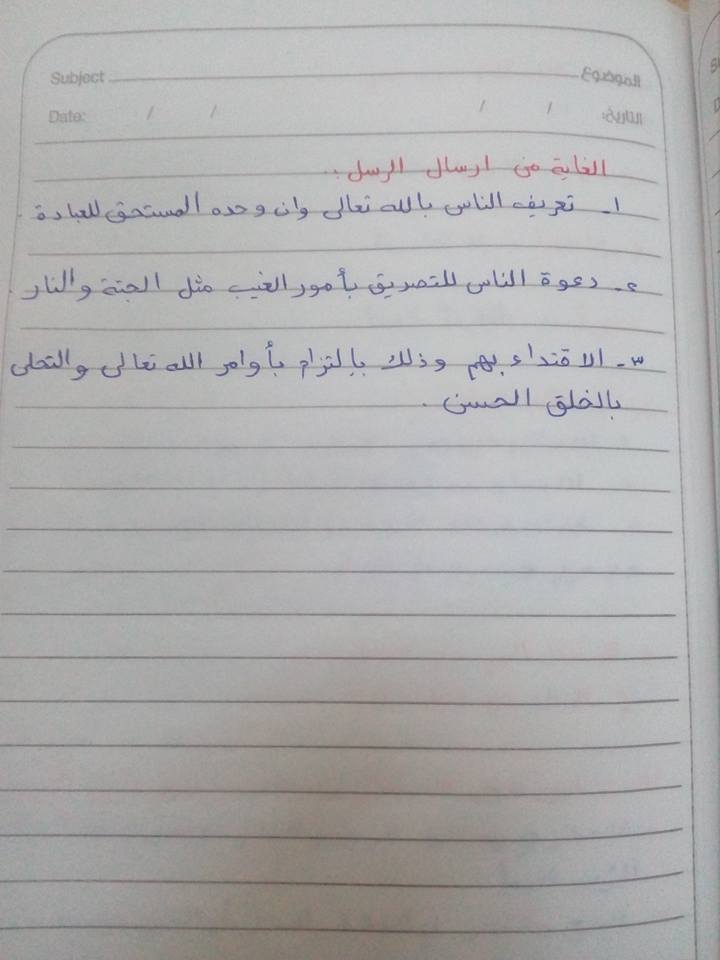 Subject الموضوع
Date: / / / / التاريخ:
الغاية من ارسال الرسل :.
١- تعريف الناس بالله تعالى وان وحده المستحق للعبادة .
٢- دعوة الناس للتصديق بأمور الغيب مثل الجنة والنار .
٣- الاقتداء بهم وذلك بإلتزام بأوامر الله تعالى والتحلي
بالخلق الحسن .